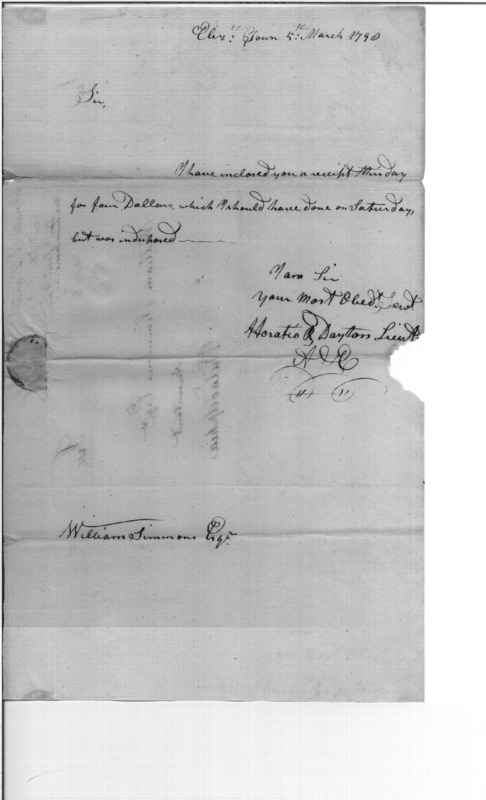 Eliz.h Town 5.th March 1798
Sir,
I have inclosed you a receipt this day
for four Dollars, which I should have done on Saturday,
but was indisposed
I am Sir
your Most Obed.t Serv.t
Horatio R Dayton Lieut.
A & E
William Simmons Esq.r